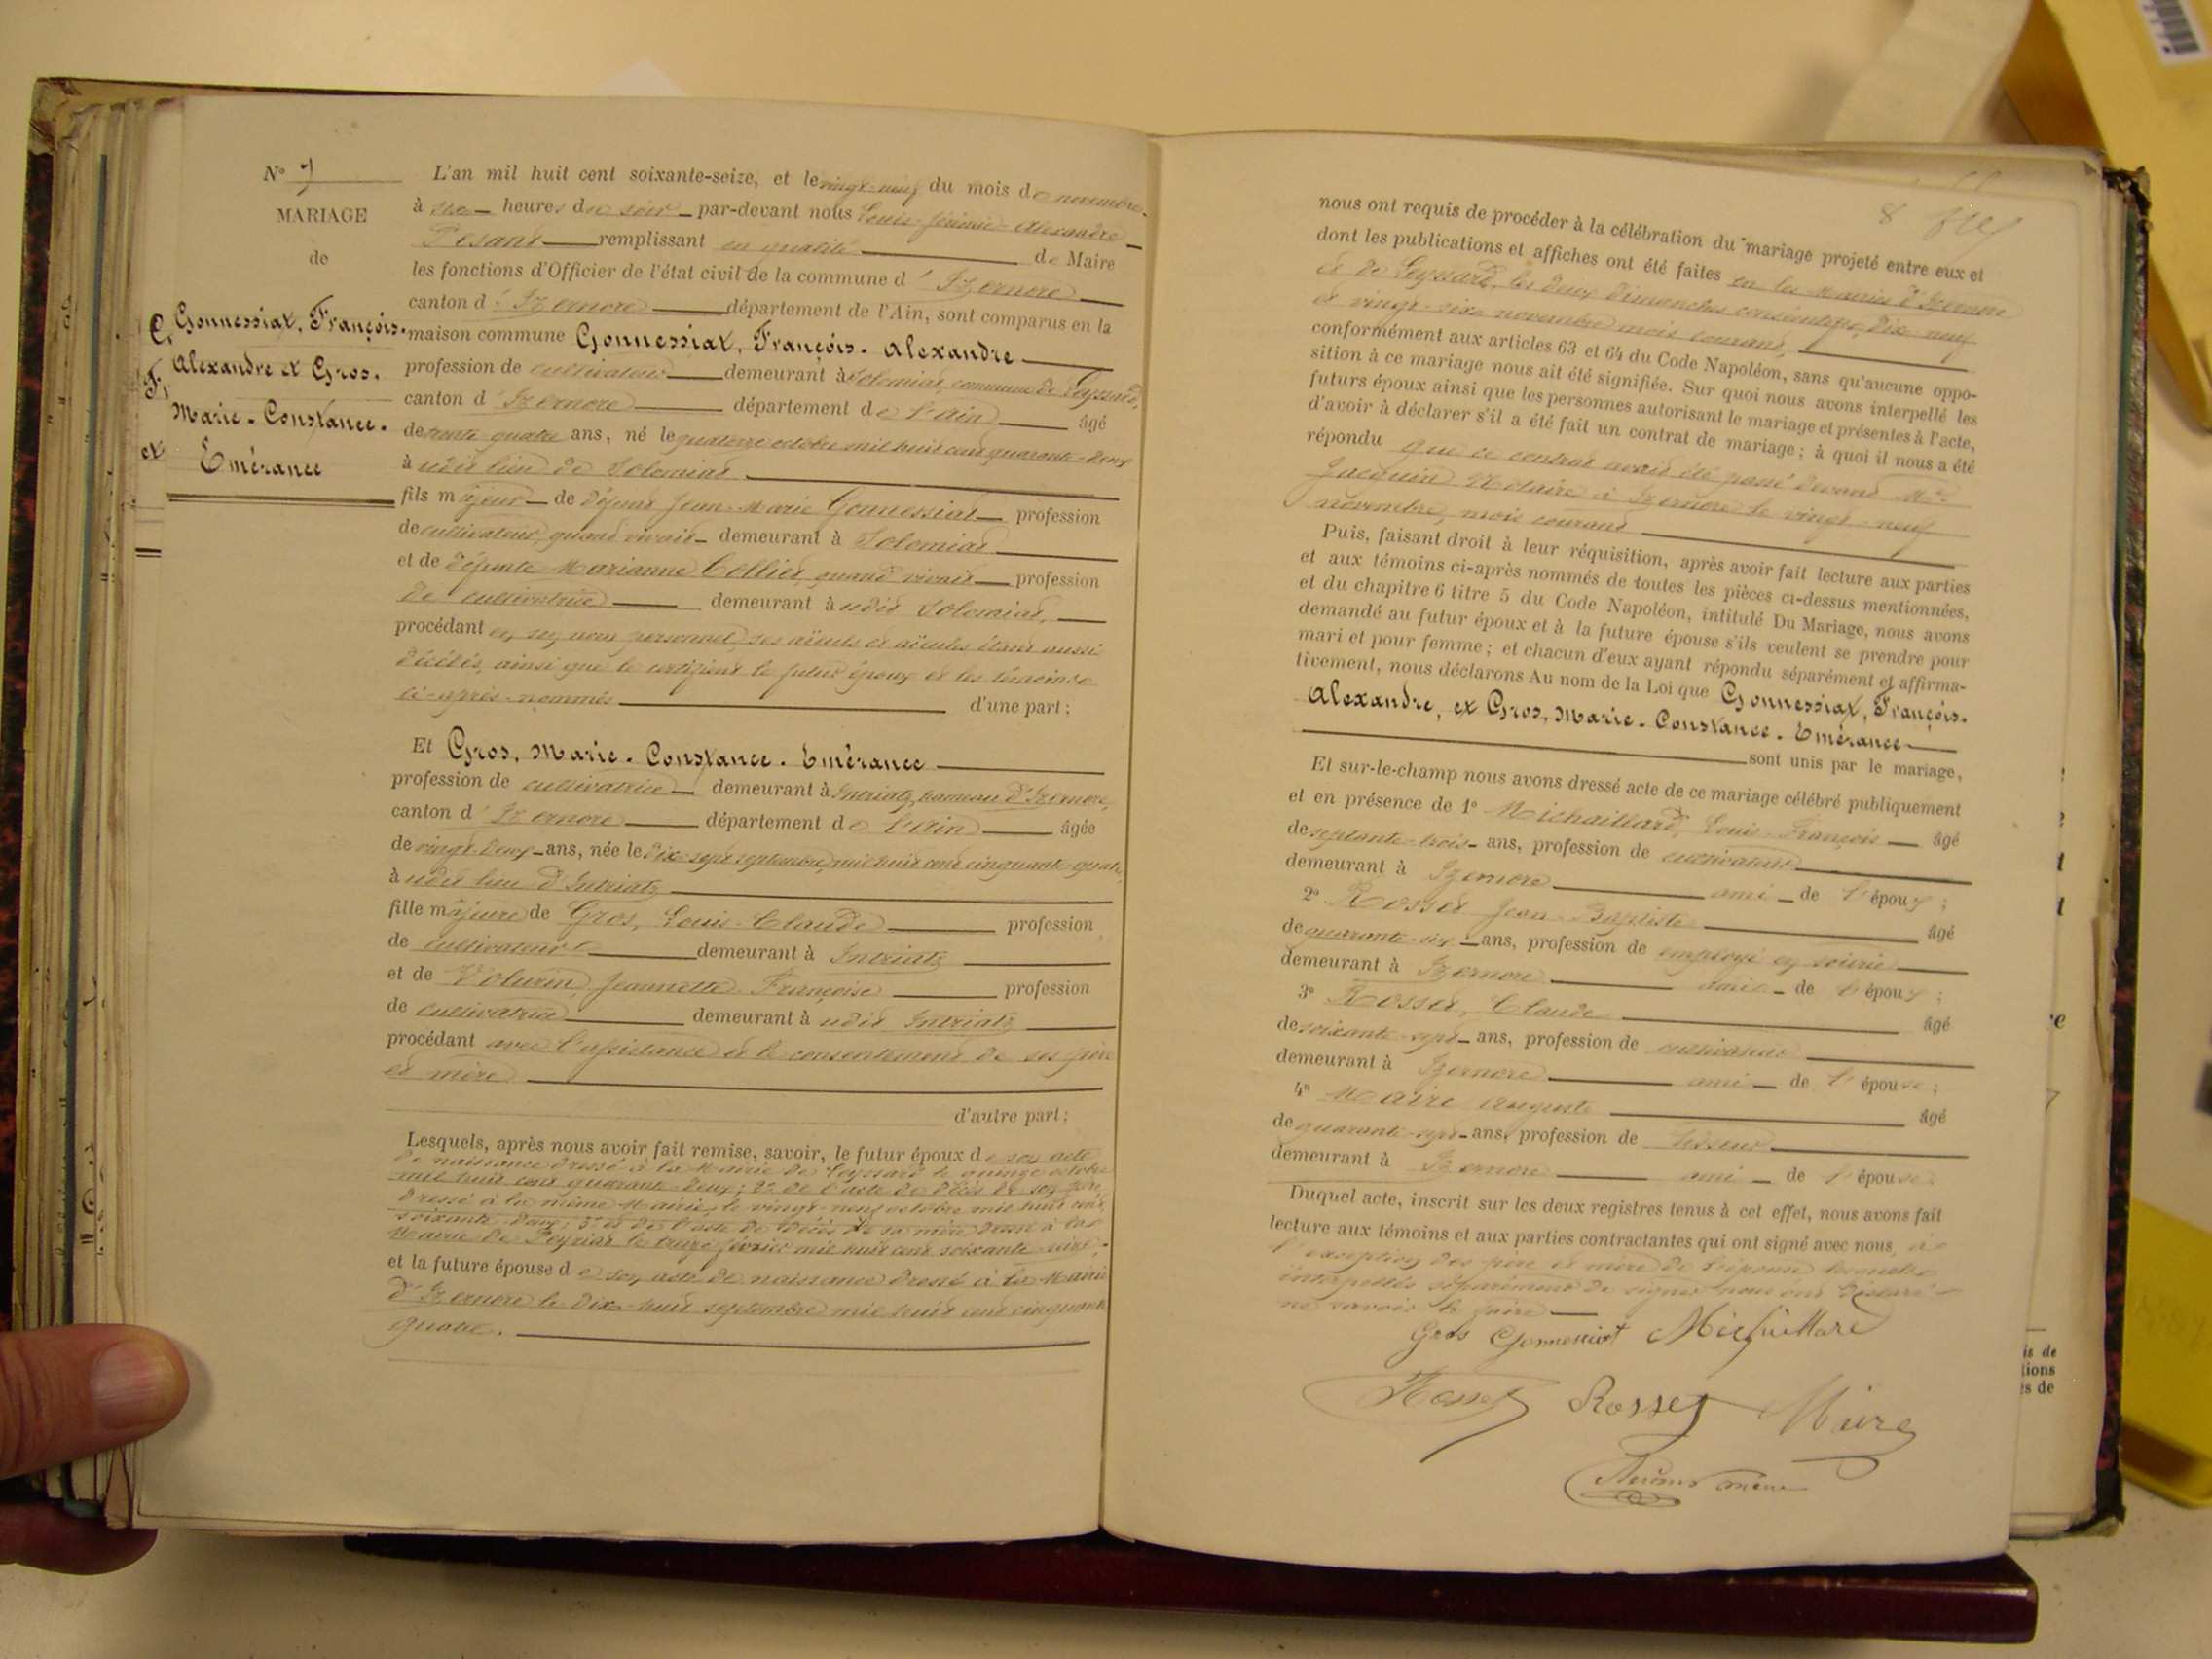 N° 7
MARIAGE
de
Gonnessiat, François-
Alexandre et Gros,
Marie-Constance-
Emérance
L'an mil huit cent soixante-seize, et le vingt-neuf du mois de novembre
à six heures du soir par-devant nous Louis Jérémie Alexandre
remplissant en qualité de Maire
les fonctions d'Officier de l'état civil de la commune d'Izernore
canton d'Izernore département de l'Ain, sont comparus en la
maison commune Gonnessiat, François-Alexandre
profession de cultivateur demeurant à Solomiat, commune de Leyssard,
canton d'Izernore département de l'Ain âgé
de trente-quatre ans, né le quatorze octobre mil huit cent quarante-deux
à udit lieu de Solomiat
fils majeur de défunt Jean-Marie Gonnessiat profession
de cultivateur quand vivait demeurant à Solomiat
et de défunte Marianne Collier, quand vivait profession
de cultivatrice demeurant à udit Solomiat,
procédant en son nom personnel, ses aïeuls et aïeules étant aussi
décédés, ainsi que le certifient le futur époux et les témoins
ci-après-nommés d'une part;
Et Gros, Marie-Constance-Emérance
profession de cultivatrice demeurant à Intriatz, hameau d'Izernore,
canton d'Izernore département de l'Ain âgée
de vingt-deux ans, née le dix-sept septembre mil huit cent cinquante-quatre,
à udit lieu d'Intriatz
fille majeure de Gros, Louis-Claude profession
de cultivateur demeurant à Intriatz
et de Volurin, Jeannette-Françoise profession
de cultivatrice demeurant à udit Intriatz
procédant avec l'assistance et le consentement de ses père
et mère
d'autre part;
Lesquels, après nous avoir fait remise, savoir, le futur époux de son acte
de naissance dressé à la Mairie de Leyssard le quinze octobre
mil huit cent quarante-deux; 2° de l'acte de décès de son père,
dressé à la même Mairie, le vingt-neuf octobre mil huit cent
soixante-deux; 3° et de l'acte de décès de sa mère dressé à la
Mairie de Peyriat le treize février mil huit cent soixante-seize;
et la future épouse de son acte de naissance dressé à la Mairie
d'Izernore le dix-huit septembre mil huit cent cinquante
quatre.
8
nous ont requis de procéder à la célébration du mariage projeté entre eux et
dont les publications et affiches ont été faites en les Mairies d'Izernore
et de Leyssard, les deux dimanches consécutifs, dix-neuf
et vingt-six novembre mois courant,
conformément aux articles 63 et 64 du Code Napoléon, sans qu'aucune oppo-
sition à ce mariage nous ait été signifiée. Sur quoi nous avons interpellé les
futurs époux ainsi que les personnes autorisant le mariage et présentes à l'acte,
d'avoir à déclarer s'il a été fait un contrat de mariage; à quoi il nous a été
répondu que ce contrat avait été passé devant Me
Jacquin Notaire à Izernore le vingt-neuf
novembre, mois courant
Puis, faisant droit à leur réquisition, après avoir fait lecture aux parties
et aux témoins ci-après nommés de toutes les pièces ci-dessus mentionnées,
et du chapitre 6 titre 5 du Code Napoléon, intitulé Du Mariage, nous avons
demandé au futur époux et à la future épouse s'ils veulent se prendre pour
mari et pour femme; et chacun d'eux ayant répondu séparément et affirma-
tivement, nous déclarons Au nom de la Loi que Gonnessiat, François-
Alexandre, et Gros, Marie-Constance-Emérance
sont unis par le mariage,
Et sur-le-champ nous avons dressé acte de ce mariage célébré publiquement
et en présence de 1° Michaillard, Louis-François âgé
de septante-trois ans, profession de cultivateur
demeurant à Izernore ami de l'époux;
2° Rosset Jean-Baptiste âgé
de quarante-six ans, profession de employé en soierie
demeurant à Izernore ami de l'époux;
3° Rosset, Claude âgé
de soixante-sept ans, profession de cultivateur
demeurant à Izernore ami de l'épouse;
4° Maire Auguste âgé
de quarante-sept ans, profession de tisseur
demeurant à Izernore ami de l'épouse
Duquel acte, inscrit sur les deux registres tenus à cet effet, nous avons fait
lecture aux témoins et aux parties contractantes qui ont signé avec nous, à
l'exception des père et mère de l'épouse lesquels
interpellés séparément de signer nous ont déclaré
ne savoir le faire
Gros Gonnessiat Michaillard
Rosset Rosset Maire
is de
tions
es de